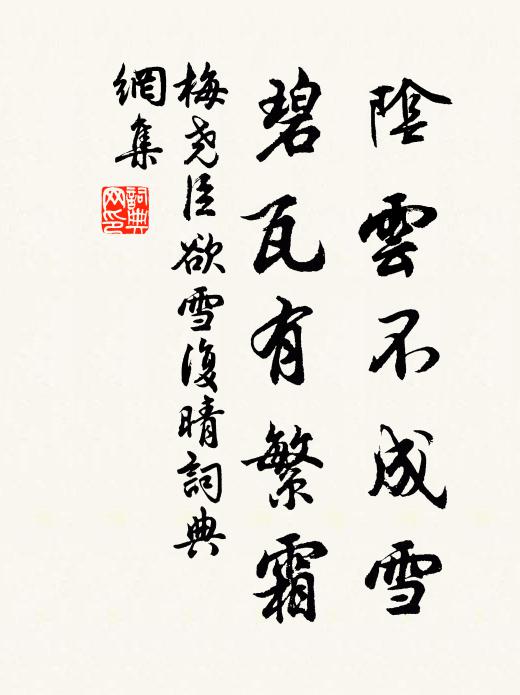 陰雲不成雪
碧瓦有繁霜
梅尧臣欲雪復晴詞典
網集
詞典网印